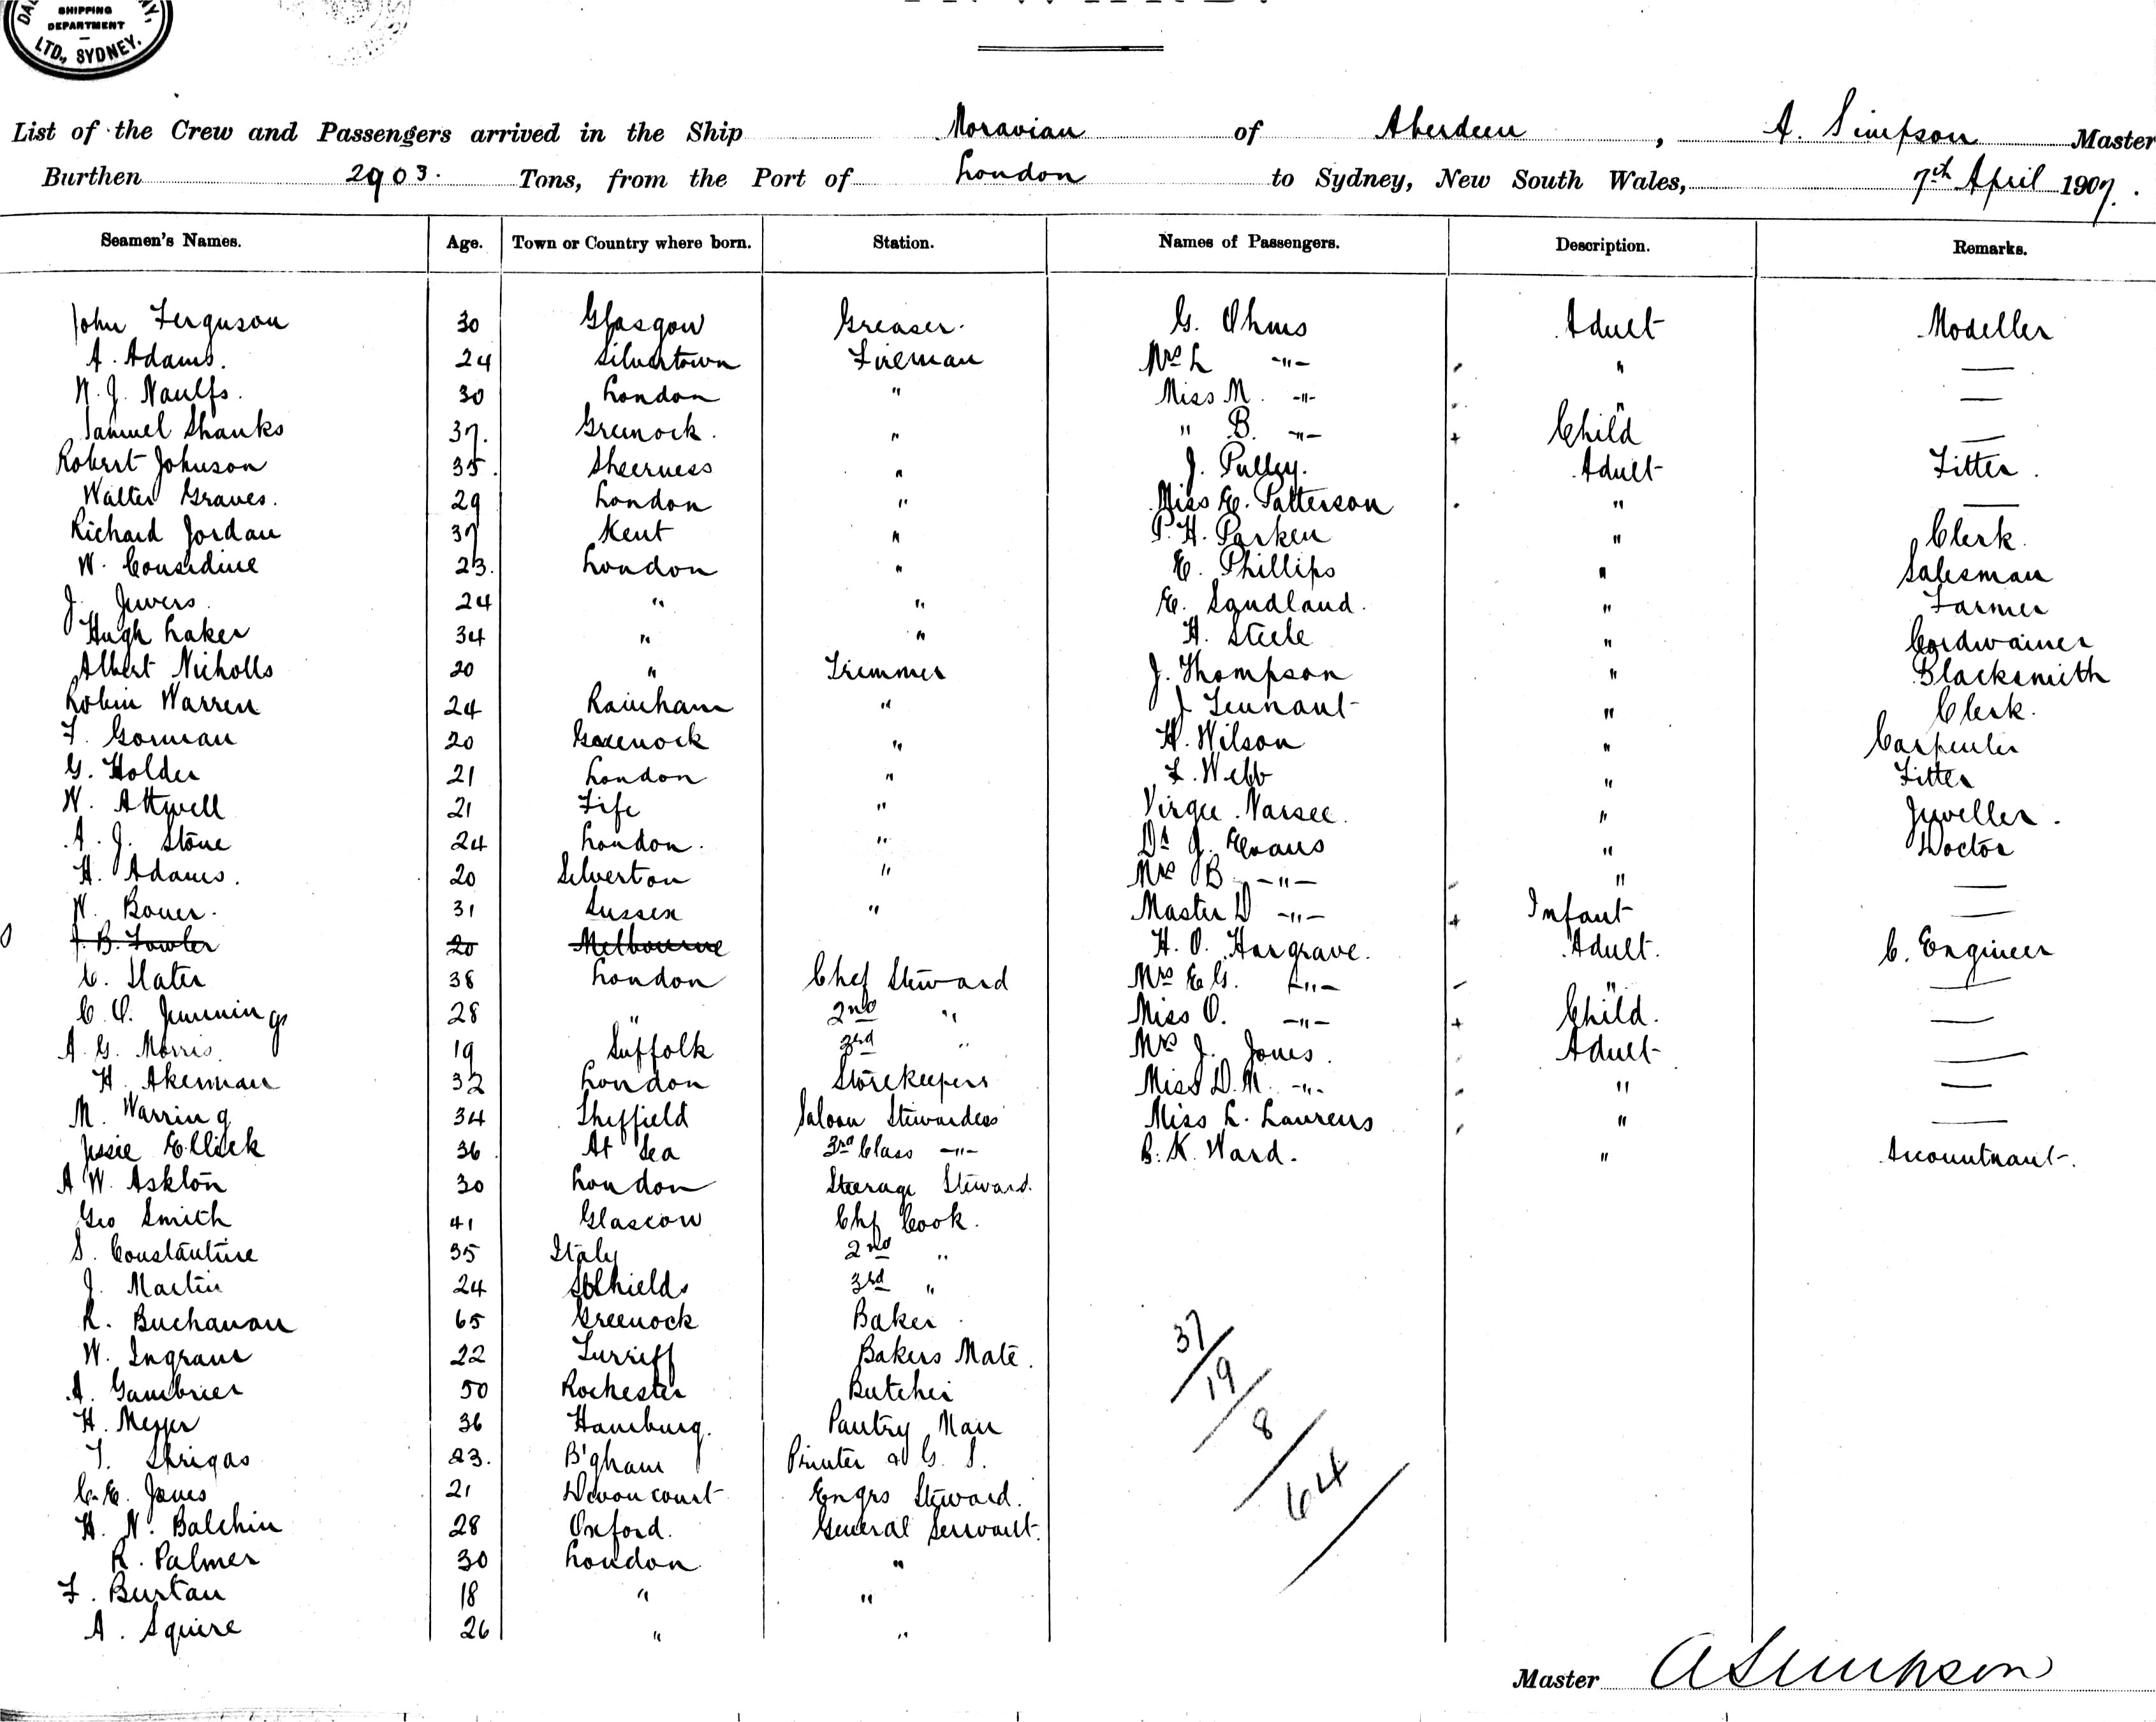 SHIPPING
DEPARTMENT
LTD., SYDNEY.
List of the Crew and Passengers arrived in the Ship Moravian of Aberdeen, A. Simpson Master
Burthen 2903. Tons, from the Port of London to Sydney, New South Wales, 7th April 1907.
Seamen's Names. Age. Town or Country where born. Station. Names of Passengers. Description. Remarks.
John Ferguson 30 Glasgow Greaser. G. Ohms Adult Modeller
A. Adams. 24 Silvertown Fireman Mrs L -"- " —
W. J. Naulfs. 30 London " Miss M. -"- " —
Samuel Shanks 37. Greenock. " " B. -"- + Child —
Robert Johnson 35. Sheerness " J. Pulley. Adult Fitter.
Walter Graves. 29 London " Miss E. Patterson " —
Richard Jordan 37 Kent " P. H. Parken " Clerk.
W. Considine 23. London " E. Phillips " Salesman
J. Jewers. 24 " " E. Sandland. " Farmer
Hugh Laker 34 " " H. Steele " Cordwainer
Albert Nicholls 20 " Trimmer J. Thompson " Blacksmith
Robin Warren 24 Rainham " J Tennant " Clerk.
F. Gorman 20 Greenock " H. Wilson " Carpenter
G. Holder 21 London " F. Webb " Fitter
W. Attwell 21 Fife " Virgee Narsee. " Jeweller.
A. J. Stone 24 London. " Dr J. Evans " Doctor
H. Adams. 20 Silverton " Mrs B -"- " —
W. Bouer. 31 Sussex " Master D -"- + Infant —
J. B. Fowler 20 Melbourne H. O. Hargrave. Adult. C. Engineer
C. Slater 38 London Chef Steward Mrs E G. -"- " —
C. O. Jennings 28 " 2nd " Miss O. -"- + Child. —
A. G. Morris. 19 Suffolk 3rd " Mrs J. Jones. Adult —
H. Akerman 32 London Storekeepers Miss D. M. -"- " —
M. Warring 34 Sheffield Saloon Stewardess Miss L. Laurens " —
Jessie Ellick 36 At Sea 3rd Class -"- B. K. Ward. " Accountnant.
A W. Askton 30 London Steerage Steward.
Geo Smith 41 Glascow Chf Cook.
S. Constantine 35 Italy 2nd "
J. Martin 24 SShields 3rd "
R. Buchanan 65 Greenock Baker
W. Ingram 22 Turriff Bakers Mate.
A. Gambrier 50 Rochester Butcher
H. Meyer 36 Hamburg. Pantry Man
T. Shrigas 23. B'gham Printer & G. S.
C. E. Jones 21 Devoncourt Engrs Steward.
H. W. Balchin 28 Oxford. General Servant.
R. Palmer 30 London. "
F. Burtan 18 " "
A. Squire 26 " "
37
19
8
64
Master ASimpson